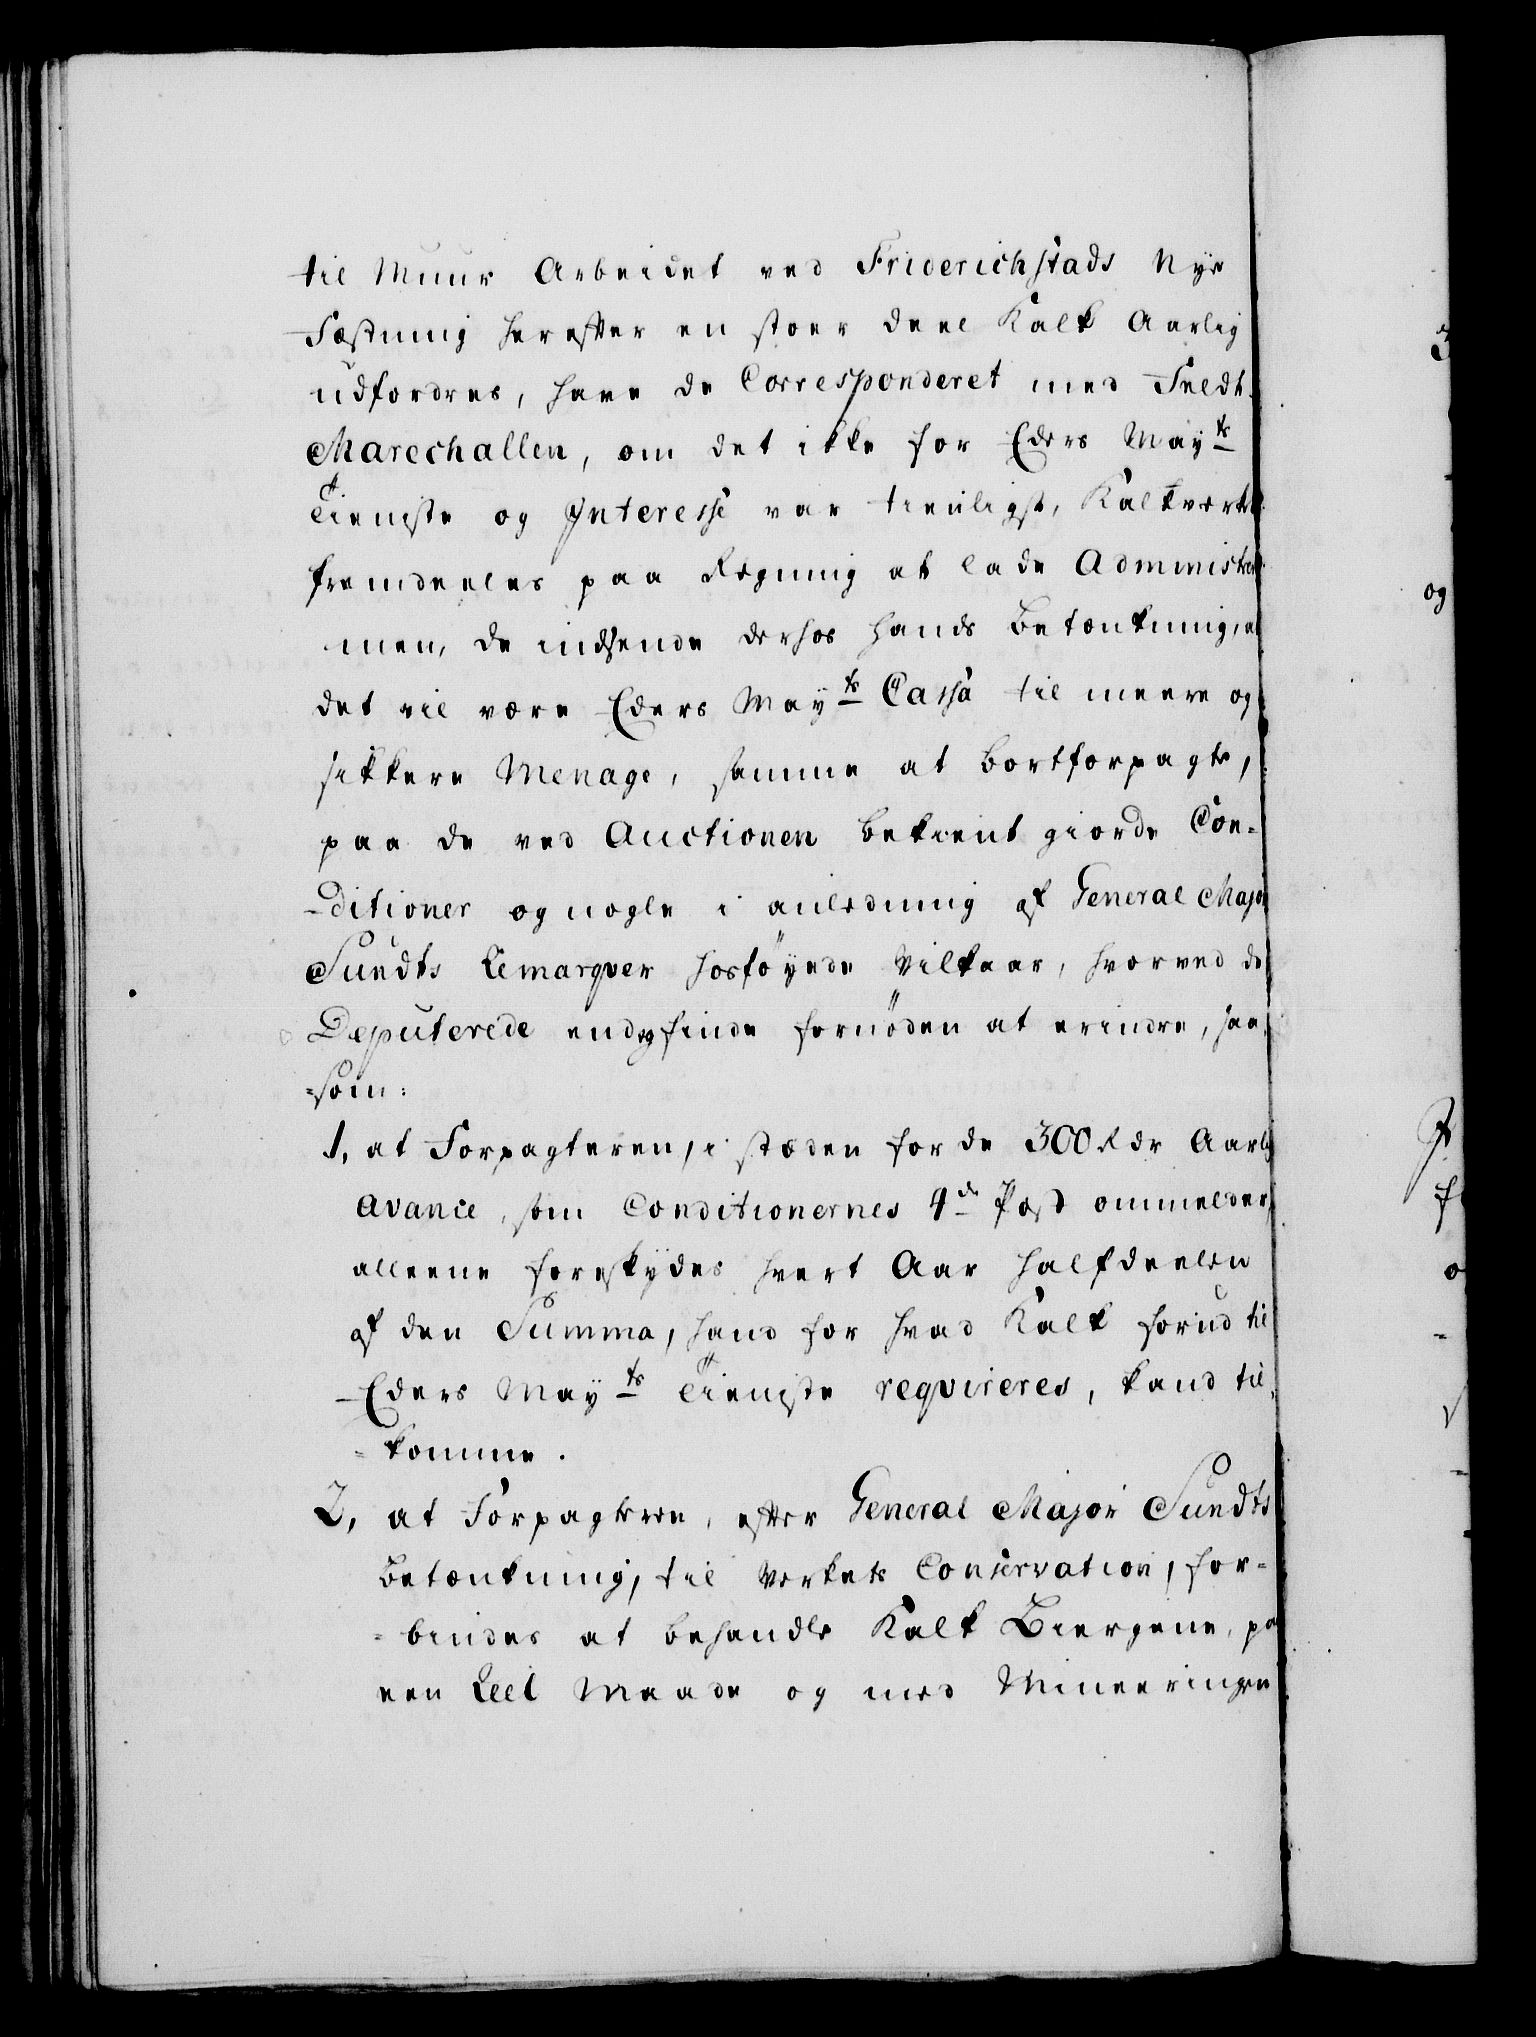 til Muur Arbeidet ved Friderichstads Nye
Fæstning herefter en stoer deel Kalk Aarlig
udfordres, have de Corresponderet med Feldt-
Marechallen, om det ikke for Eders Mayts
Tieniste og Interesse var tienligst, Kalkverket
fremdeeles paa Regning at lade Administre
men, de indsende derhos hands Betænkning, at
det vil være Eders Mayts Cassa til meere og
sikkere Menage, samme at bortforpagte,
paa de ved Auctionen bekient giorde Con-
-ditioner og nogle i anledning af General Major
Sundts Remarqver hosföyede Vilkaar, hvorved de
Deputerede endog finde fornöden at erindre, saa-
-som:
1, at Forpagteren, i stæden for de 300 Rdr Aarlig
Avance, som Conditionernes 4de Post ommelder,
alleene foreskydes hvert Aar halfdeelen
af den Summa, hand for hvad Kalk forud til
Eders Mayts Tieniste reqvireres, kand til-
-komme.
2, at Forpagteren, efter General Major Sundts
Betænkning, til Verkets Conservation, for-
-bindes at behandle Kalk Biergene, paa
een Reel Maade og med Mineeringen
og